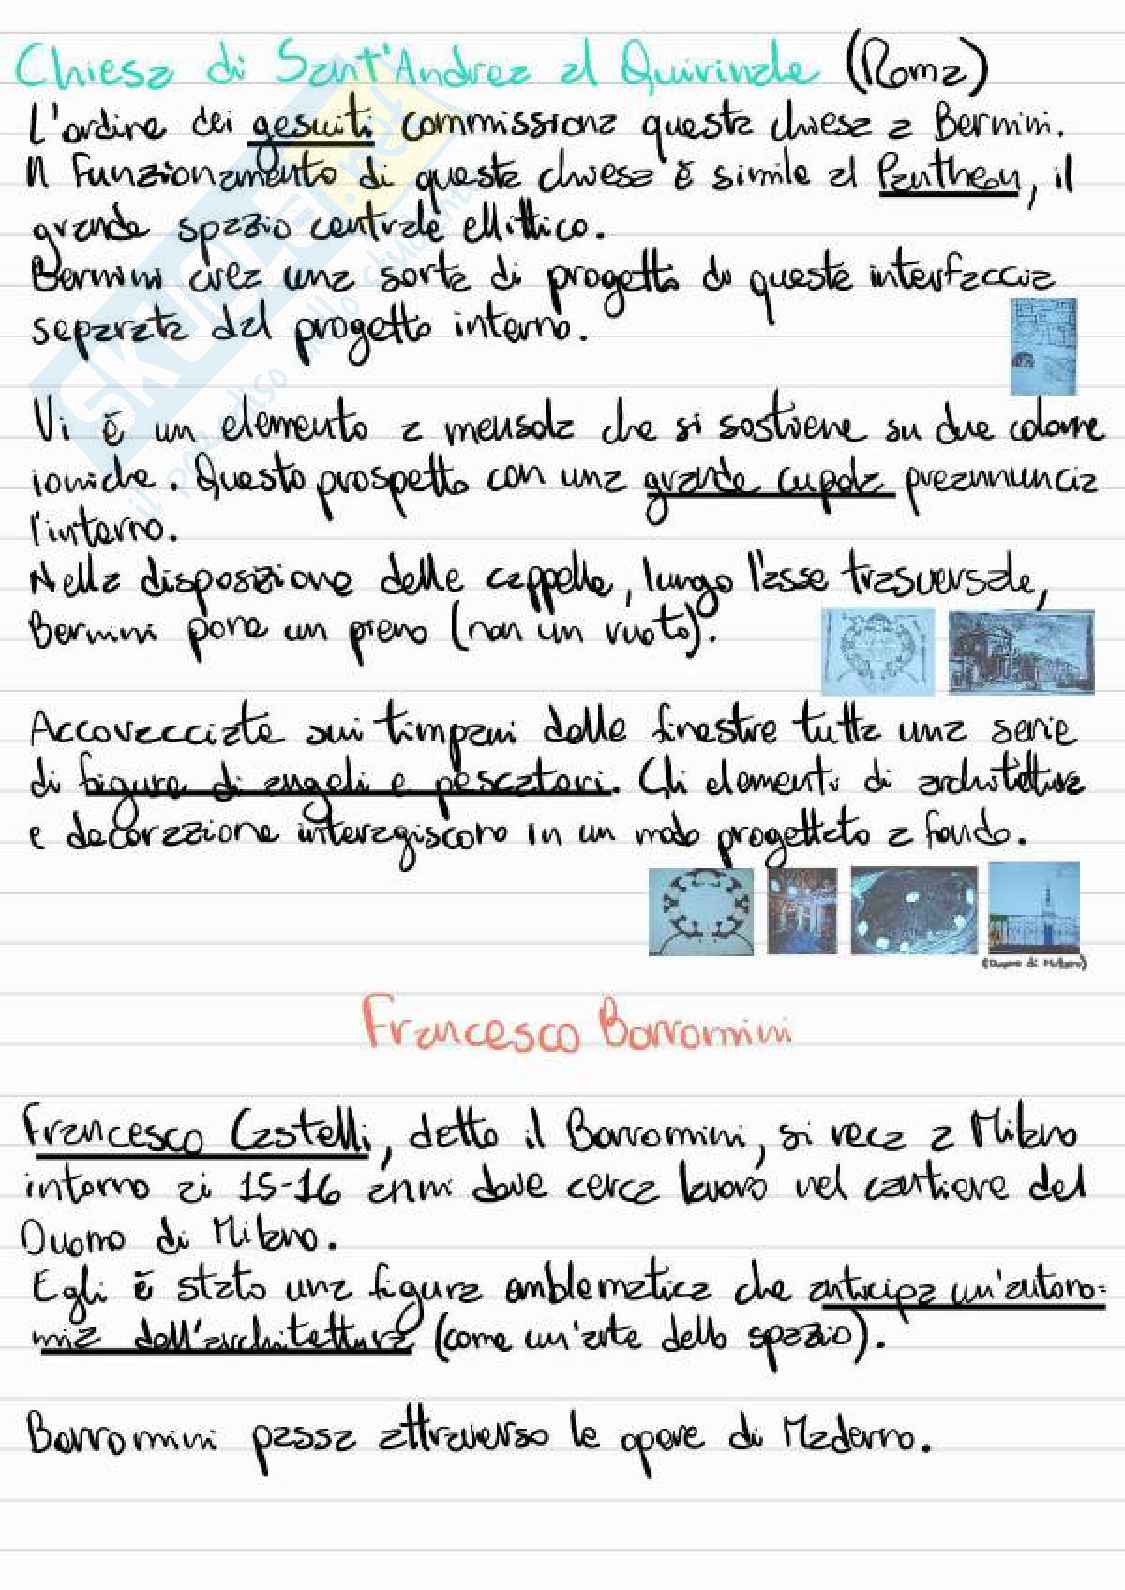 Chiesa di Sant'Andrea al Quirinale (Roma)
L'ordine dei gesuiti commissiona questa chiesa a Bernini.
Il funzionamento di questa chiesa è simile al Pantheon, il
grande spazio centrale ellittico.
Bernini crea una sorta di progetto di questa interfaccia
separata dal progetto interno.
Vi è un elemento a mensola che si sostiene su due colonne
ioniche. Questo prospetto con una grande cupola preannuncia
l'interno.
Nella disposizione delle cappelle, lungo l'asse trasversale,
Bernini pone un pieno (non un vuoto).
Accovacciate sui timpani delle finestre tutta una serie
di figure di angeli e pescatori. Gli elementi di architettura
e decorazione interagiscono in un modo progettato a fondo.
(Duomo di Milano)
Francesco Borromini
Francesco Castelli, detto il Borromini, si reca a Milano
intorno ai 15-16 anni dove cerca lavoro nel cantiere del
Duomo di Milano.
Egli è stato una figura emblematica che anticipa un'autono=
mia dell'architettura (come un'arte dello spazio).
Borromini passa attraverso le opere di Maderno.
SKUOLA.net